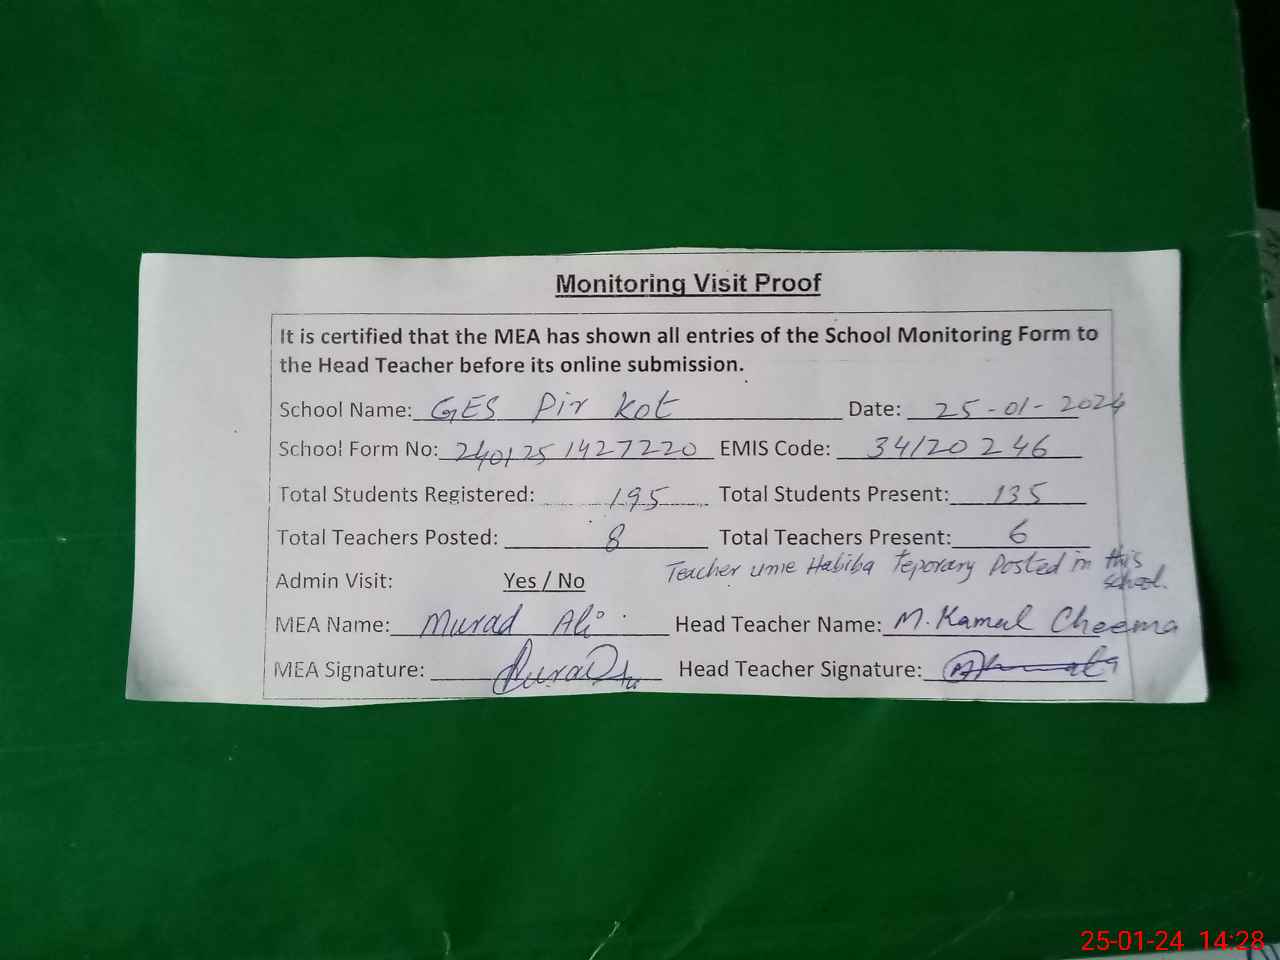 Monitoring Visit Proof
It is certified that the MEA has shown all entries of the School Monitoring Form to
the Head Teacher before its online submission.
School Name: GES Pir Kot Date: 25-01-2024
School Form No: 2401251427220 EMIS Code: 34120246
Total Students Registered: 195 Total Students Present: 135
Total Teachers Posted: 8 Total Teachers Present: 6
Teacher ume Habiba Teporary Posted in this
school.
Admin Visit: Yes / No
MEA Name: Murad Ali Head Teacher Name: M. Kamal Cheema
MEA Signature: Head Teacher Signature:
25-01-24 14:28